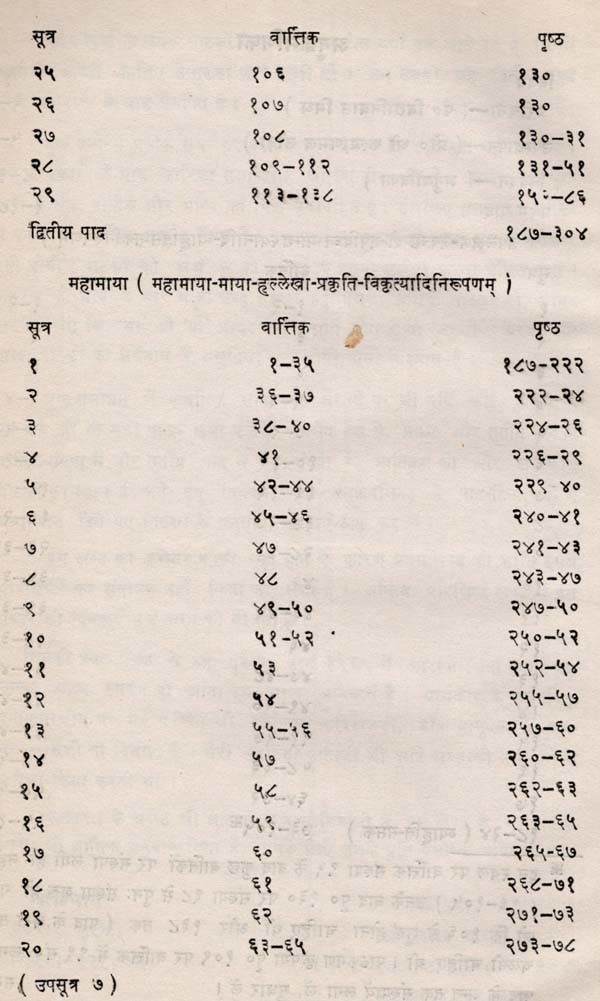 सूत्र वार्त्तिक पृष्ठ
२५ १०६ १३०
२६ १०७ १३०
२७ १०८ १३०-३१
२८ १०९-११२ १३१-५१
२९ ११३-१३८
द्वितीय पाद १८७-३०४
महामाया ( महामाया-माया-हृल्लेखा-प्रकृति-विकृत्यादिनिरूपणम् )
सूत्र वार्त्तिक पृष्ठ
१ १-३५ १८७-२२२
२ ३६-३७ २२२-२४
३ ३८-४० २२४-२६
४ ४१ २२६-२९
५ ४२-४४ २२९ ४०
६ ४५-४६ २४०-४१
७ ४७ २४१-४३
८ ४८ २४३-४७
९ ४९-५० २४७-५०
१० ५१-५२ २५०-५२
११ ५३ २५२-५४
१२ ५४ २५५-५७
१३ ५५-५६ २५७-६०
१४ ५७ २६०-६२
१५ ५८ २६२-६३
१६ ५९ २६३-६५
१७ ६० २६५-६७
१८ ६१ २६८-७१
१९ ६२ २७१-७३
२० ६३-६५ २७३-७८
( उपसूत्र ७ )